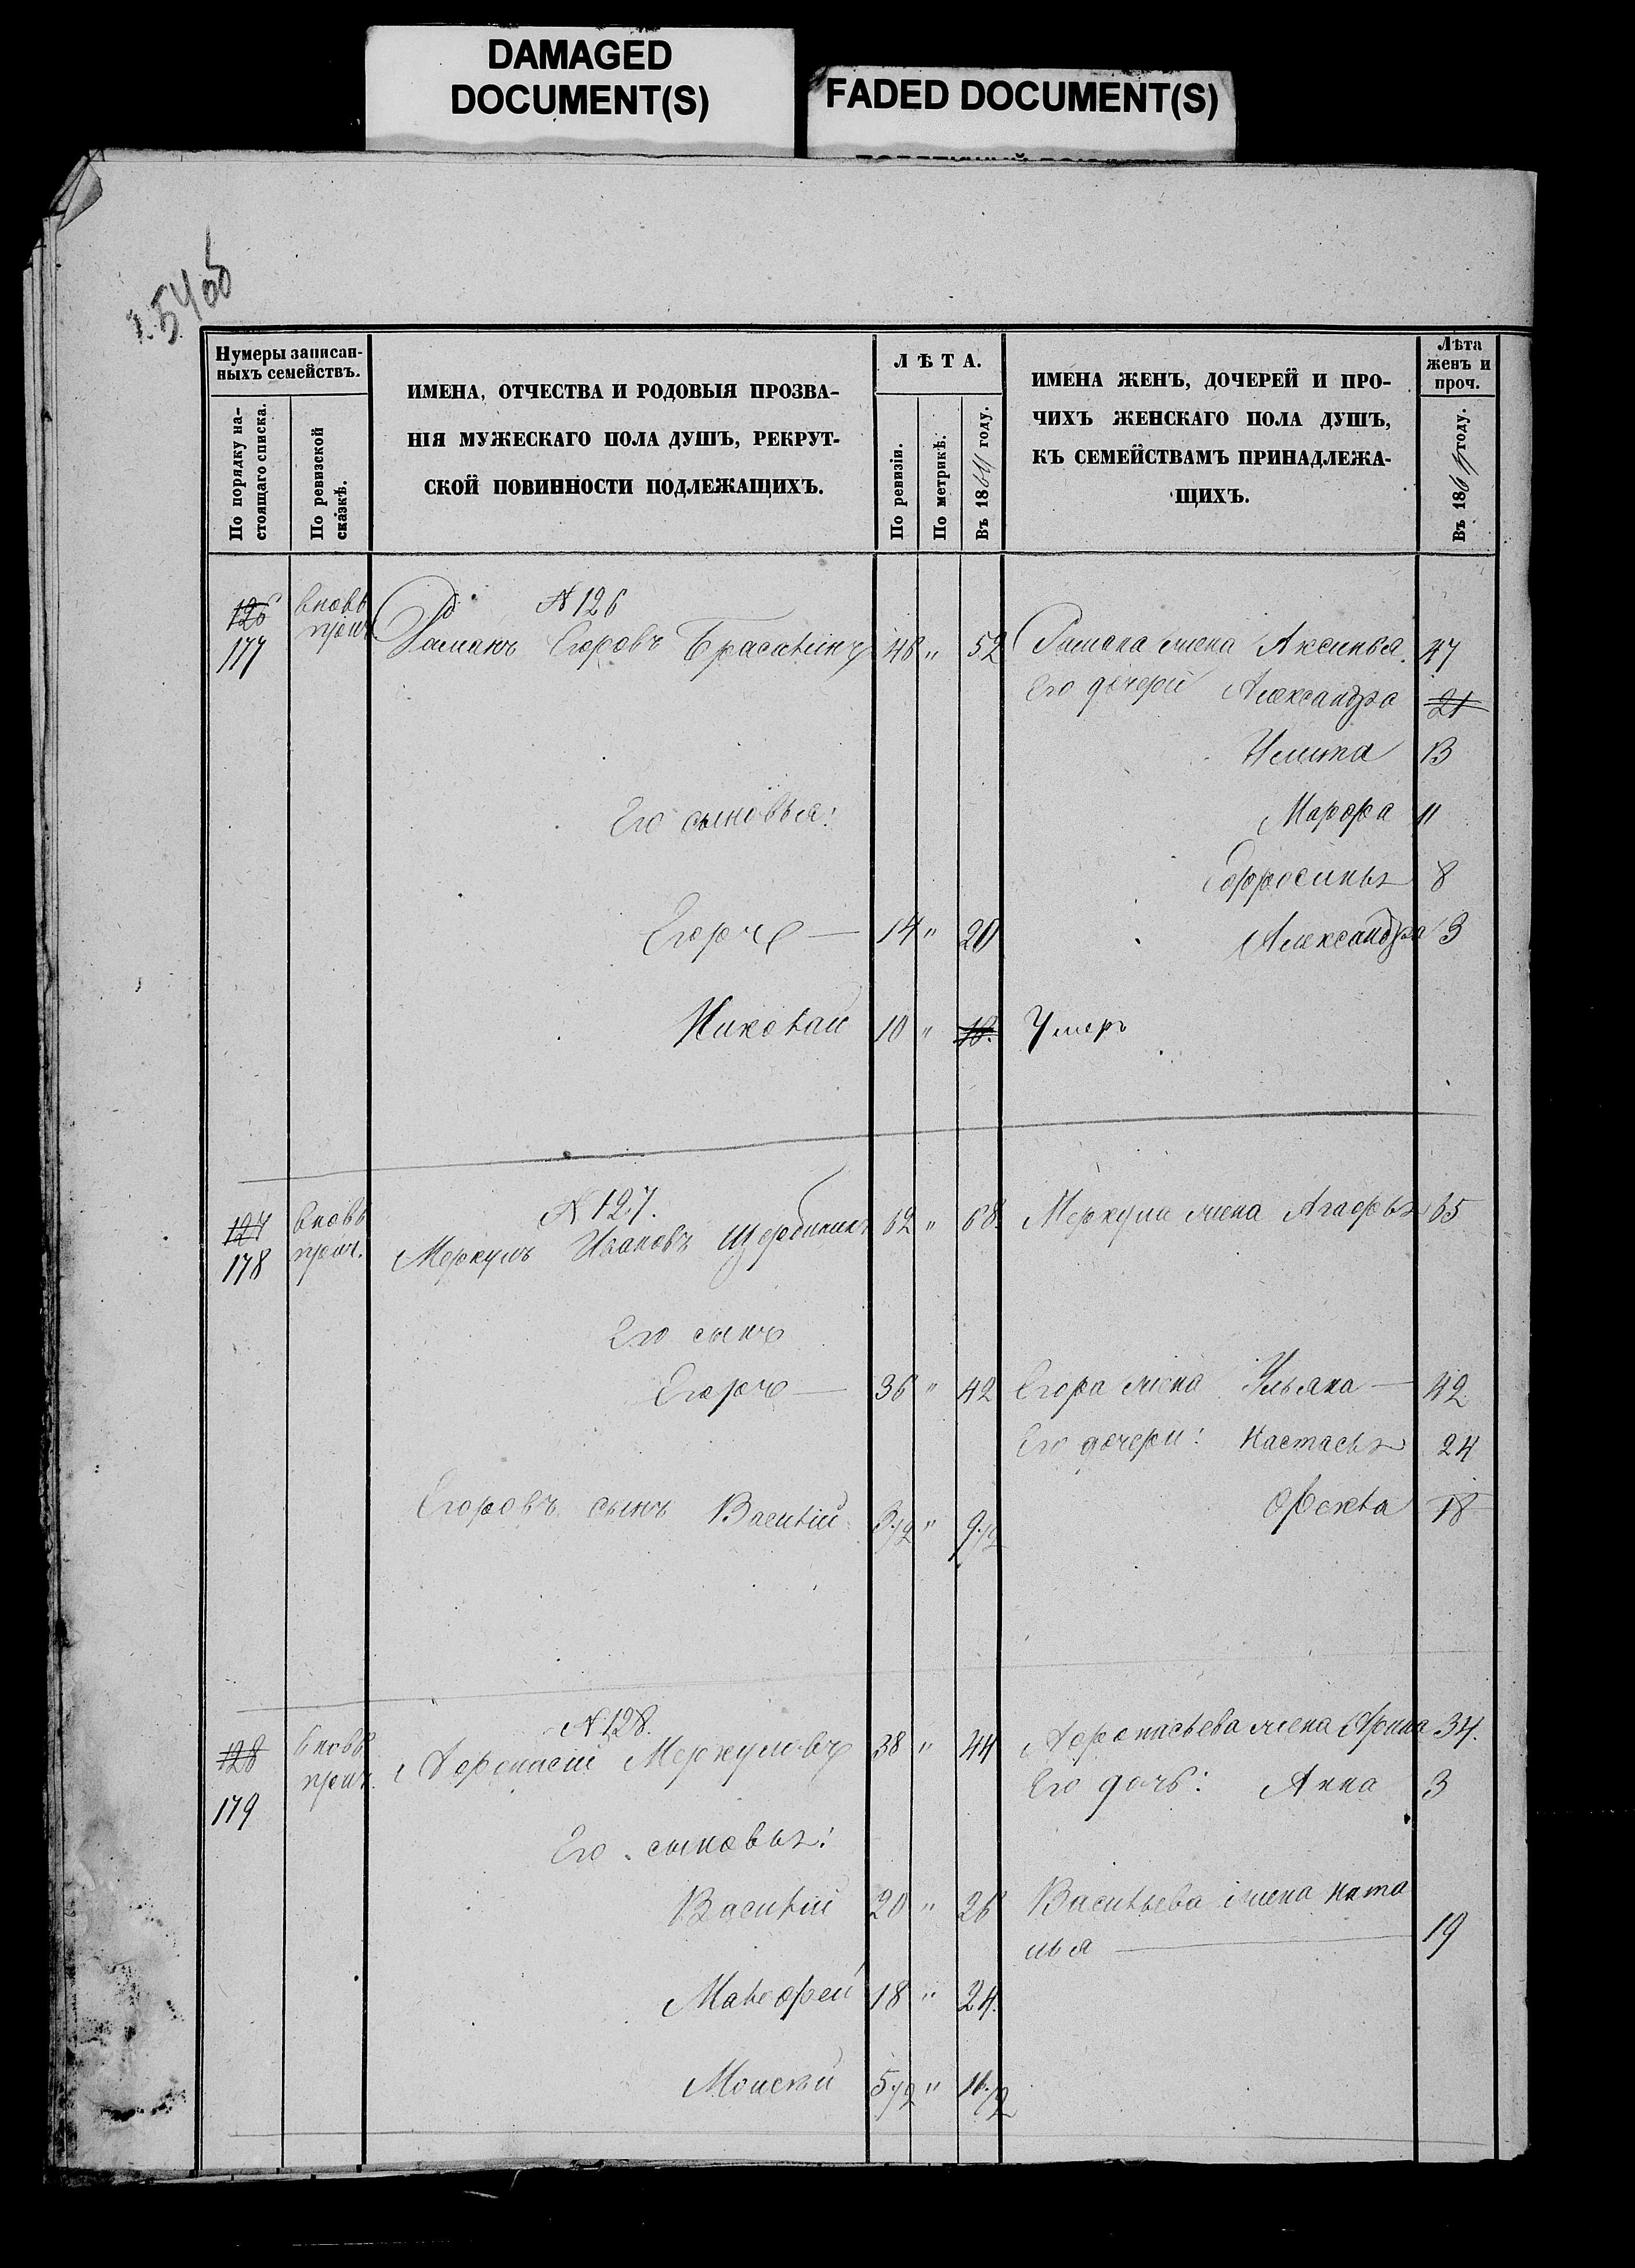 DAMAGED
DOCUMENT(S)
FADED DOCUMENT(S)
54 об
Нумеры записан-
ныхъ семействъ.
По порядку на-
стоящаго списка.
По ревизской
сказкѣ.
ИМЕНА, ОТЧЕСТВА И РОДОВЫЯ ПРОЗВА-
НІЯ МУЖЕСКАГО ПОЛА ДУШЪ, РЕКРУТ-
СКОЙ ПОВИННОСТИ ПОДЛЕЖАЩИХЪ.
ЛѢТА.
По ревизіи.
По метрикѣ.
Въ 1864 году.
ИМЕНА ЖЕНЪ, ДОЧЕРЕЙ И ПРО-
ЧИХЪ ЖЕНСКАГО ПОЛА ДУШЪ,
КЪ СЕМЕЙСТВАМЪ ПРИНАДЛЕЖА-
ЩИХЪ.
Лѣта
женъ и
проч.
Въ 1864 году.
126 вновь № 126
177 прич Романъ Егоровъ 48 " 52 Романа жена Аксинья. 47
Его дочери Александра 21
13
Его сыновья: Марфа 11
Ефросинья 8
Егоръ — 14 " 20 Александра 3
Николай 10 " 18. Умеръ
127 вновь № 127.
178 прич. Меркулъ Ивановъ Щербининъ 62 " 68. Меркула жена Агафья 65
Его сынъ
Егоръ — 36 " 42 Егора жена Ульяна — 42
Его дочери: Настасья 24
Егоровъ сынъ Василій 3 1/2 " 9 1/2 Фекла 18
128 вновь № 128.
179 прич. Афонасій Меркуловъ 38 " 44 Афонасьева жена Арина 34.
Его дочь: Анна 3
Его сыновья:
Василій 20 " 26 Васильева жена Ната
лья — 19
Малофей 18 " 24.
Моисей 5 1/2 " 11 1/2